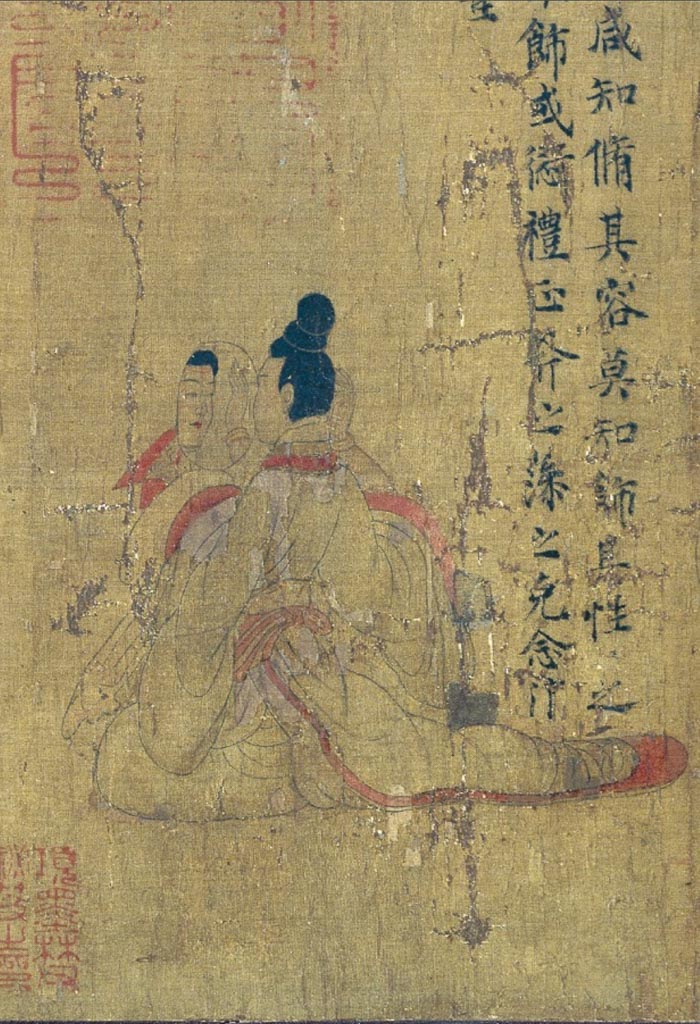 咸知脩其容莫知飾其性〻之
飾或愆禮正斧之藻之克念作